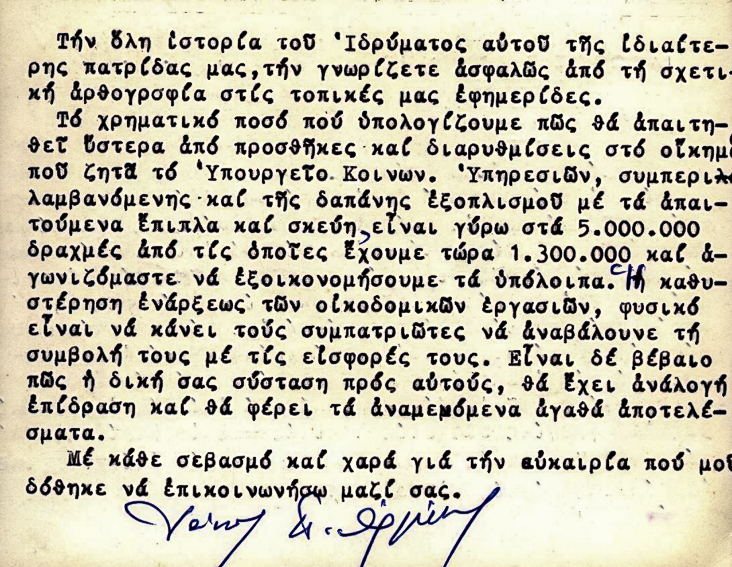 Τήν ὅλη ἱστορία τοῦ Ἱδρύματος αὐτοῦ τῆς ἰδιαίτε-
ρης πατρίδας μας,τήν γνωρίζετε ἀσφαλῶς ἀπό τή σχετι-
κή ἀρθογραφία στίς τοπικές μας ἐφημερίδες.
Τό χρηματικό ποσό πού ὑπολογίζουμε πῶς θά ἀπαιτη-
θεῖ ὕστερα ἀπό προσθῆκες καί διαρυθμίσεις στό οἴκημ
ποῦ ζητᾶ τό Ὑπουργεῖο Κοινων. Ὑπηρεσιῶν, συμπερι
λαμβανόμενης καί τῆς δαπάνης ἐξοπλισμοῦ μέ τά ἀπαι-
τούμενα ἔπιπλα καί σκεύη,εἶναι γύρω στά 5.000.000
δραχμές ἀπό τίς ὁποῖες ἔχουμε τώρα 1.300.000 καί ἀ-
γωνιζόμαστε νά ἐξοικονομήσουμε τά ὑπόλοιπα. Ἡ καθυ-
στέρηση ἐνάρξεως τῶν οἰκοδομικῶν ἐργασιῶν, φυσικό
εἶναι νά κάνει τούς συμπατριῶτες νά ἀναβάλουνε τή
συμβολή τους μέ τίς εἰσφορές τους. Εἶναι δέ βέβαιο
πῶς ἡ δική σας σύσταση πρός αὐτούς, θά ἔχει ἀνάλογή
ἐπίδραση καί θά φέρει τά ἀναμενόμενα ἀγαθά ἀποτελέ-
σματα.
Μέ κάθε σεβασμό καί χαρά γιά τήν εὐκαιρία πού μοῦ
δόθηκε νά ἐπικοινωνήσω μαζί σας.